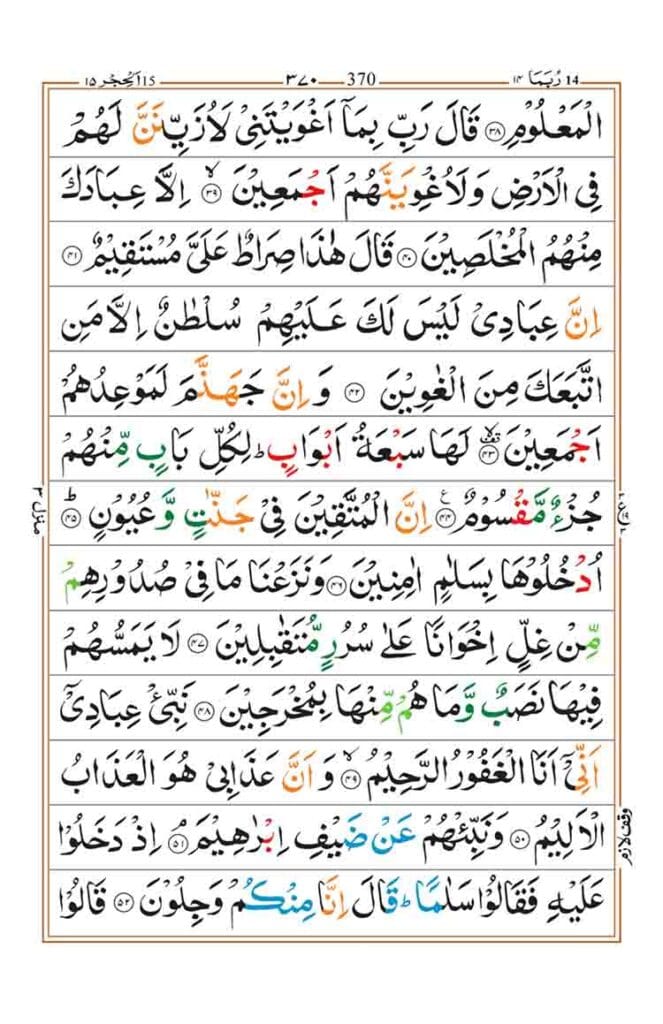 رُبَمَا ١٤ 14
370 ٣٧٠
15 اَلْحِجْر ١٥
الْمَعْلُوْمِ ﴿۳۸﴾ قَالَ رَبِّ بِمَاۤ اَغْوَيْتَنِىْ لَاُزَيِّنَنَّ لَهُمْ
فِى الْاَرْضِ وَلَاُغْوِيَنَّهُمْ اَجْمَعِيْنَ ۙ﴿۳۹﴾ اِلَّا عِبَادَكَ
مِنْهُمُ الْمُخْلَصِيْنَ ﴿۴۰﴾ قَالَ هٰذَا صِرَاطٌ عَلَىَّ مُسْتَقِيْمٌ ﴿۴۱﴾
اِنَّ عِبَادِىْ لَيْسَ لَكَ عَلَيْهِمْ سُلْطٰنٌ اِلَّا مَنِ
اتَّبَعَكَ مِنَ الْغٰوِيْنَ ﴿۴۲﴾ وَاِنَّ جَهَنَّمَ لَمَوْعِدُهُمْ
اَجْمَعِيْنَ ۟ۙ﴿۴۳﴾ لَهَا سَبْعَةُ اَبْوَابٍ ؕ لِكُلِّ بَابٍ مِّنْهُمْ
جُزْءٌ مَّقْسُوْمٌ ﴿۴۴﴾ ع اِنَّ الْمُتَّقِيْنَ فِىْ جَنّٰتٍ وَّعُيُوْنٍ ؕ﴿۴۵﴾
اُدْخُلُوْهَا بِسَلٰمٍ اٰمِنِيْنَ ﴿۴۶﴾ وَنَزَعْنَا مَا فِىْ صُدُوْرِهِمْ
مِّنْ غِلٍّ اِخْوَانًا عَلٰى سُرُرٍ مُّتَقٰبِلِيْنَ ﴿۴۷﴾ لَا يَمَسُّهُمْ
فِيْهَا نَصَبٌ وَّمَا هُمْ مِّنْهَا بِمُخْرَجِيْنَ ﴿۴۸﴾ نَبِّئْ عِبَادِىْۤ
اَنِّىْۤ اَنَا الْغَفُوْرُ الرَّحِيْمُ ۙ﴿۴۹﴾ وَاَنَّ عَذَابِىْ هُوَ الْعَذَابُ
الْاَلِيْمُ ﴿۵۰﴾ وَنَبِّئْهُمْ عَنْ ضَيْفِ اِبْرٰهِيْمَ ۘ﴿۵۱﴾ اِذْ دَخَلُوْا
عَلَيْهِ فَقَالُوْا سَلٰمًا ؕ قَالَ اِنَّا مِنْكُمْ وَجِلُوْنَ ﴿۵۲﴾ قَالُوْا
منزل ٣
وقف لازم